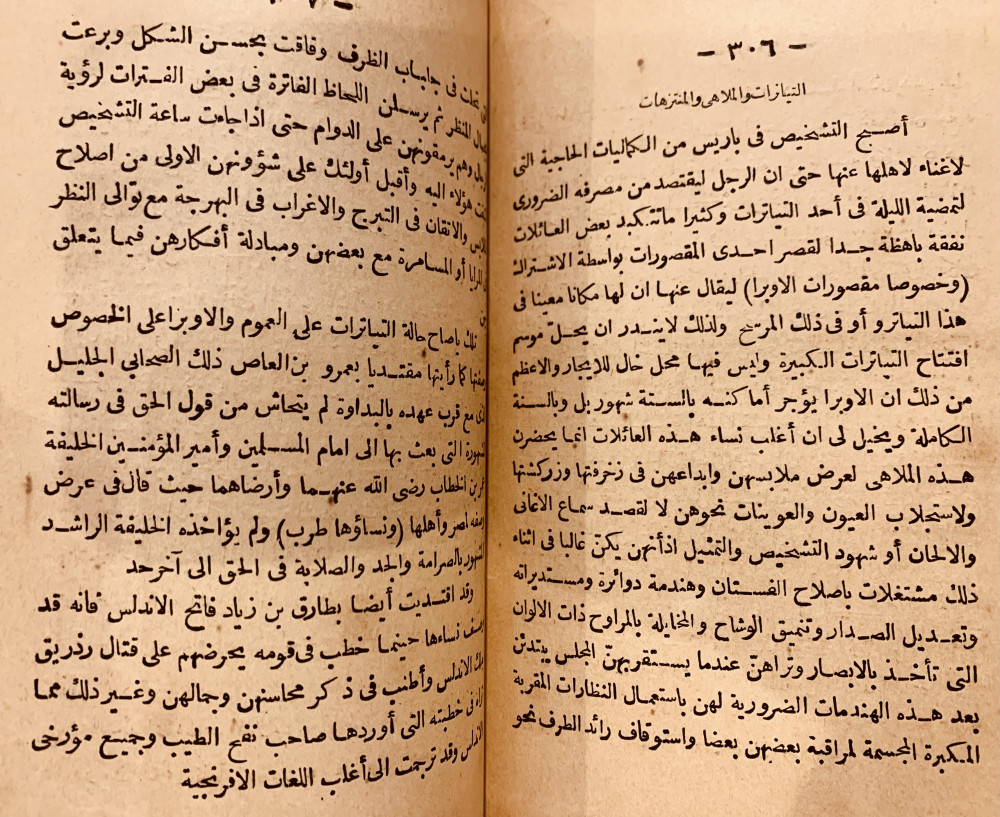 - ٣٠٦ -
التياترات والملاهى والمنتزهات
أصبح التشخيص فى باريس من الكماليات الحاجية التى
لاغناء لاهلها عنها حتى ان الرجل ليقتصد من مصرفه الضرورى
لتمضية الليلة فى أحد التياترات وكثيرا ماتتكبد بعض العائلات
نفقة باهظة جدا لقصر احدى المقصورات بواسطة الاشتراك
(وخصوصا مقصورات الاوبرا) ليقال عنها ان لها مكانا معينا فى
هذا التياترو أو فى ذلك المرسح ولذلك لايندر ان يحل موسم
افتتاح التياترات الكبيرة وليس فيها محل خال للايجار والاعظم
من ذلك ان الاوبرا يؤجر أماكنه بالستة شهور بل وبالسنة
الكاملة ويخيل لى ان أغلب نساء هذه العائلات انما يحضرن
هذه الملاهى لعرض ملابسهن وابداعهن فى زخرفتها وزركشتها
ولاستجلاب العيون والعوينات نحوهن لا لقصد سماع الاغانى
والالحان أو شهود التشخيص والتمثيل اذأنهن يكنّ غالبا فى اثناء
ذلك مشتغلات باصلاح الفستان وهندمة دوائرة ومستديراته
وتعديل الصدار وتنميق الوشاح والمخايلة بالمراوح ذات الالوان
التى تأخذ بالابصار وتراهنّ عندما يستقربهنّ المجلس يبتدئن
بعد هذه الهندمات الضرورية لهن باستعمال النظارات المقربة
المكبرة المجسمة لمراقبة بعضهن بعضا واستوقاف رائد الطرف نحو
فى جلباب الظرف وفاقت بحسن الشكل وبرعت
المنظر ثم يرسلن اللحاظ الفاترة فى بعض الفترات لرؤية
وهم يرمقونهن على الدوام حتى اذاجاءت ساعة التشخيص
هؤلاء اليه وأقبل أولئك على شؤونهن الاولى من اصلاح
والاتقان فى التبرج والاغراب فى البهرجة مع توالى النظر
المرايا أو المسامرة مع بعضهن ومبادلة أفكارهن فيما يتعلق
تلك ياصاح حالة التياترات على العموم والاوبرا على الخصوص
كما رأيتها مقتديا بعمرو بن العاص ذلك الصحابى الجليل
مع قرب عهده بالبداوة لم يتحاش من قول الحق فى رسالته
التى بعث بها الى امام المسلمين وأمير المؤمنين الخليفة
بن الخطاب رضى الله عنهما وأرضاهما حيث قال فى عرض
لمصر وأهلها (ونساؤها طرب) ولم يؤاخذه الخليفة الراشد
بالصرامة والجد والصلابة فى الحق الى آخر حد
وقد اقتديت أيضا بطارق بن زياد فاتح الاندلس فانه قد
نساءها حينما خطب فى قومه يحرضهم على قتال رذريق
الاندلس وأطنب فى ذكر محاسنهن وجمالهن وغير ذلك مما
فى خطبته التى أوردها صاحب نفح الطيب وجميع مؤرخى
الاندلس وقد ترجمت الى أغلب اللغات الافرنجية